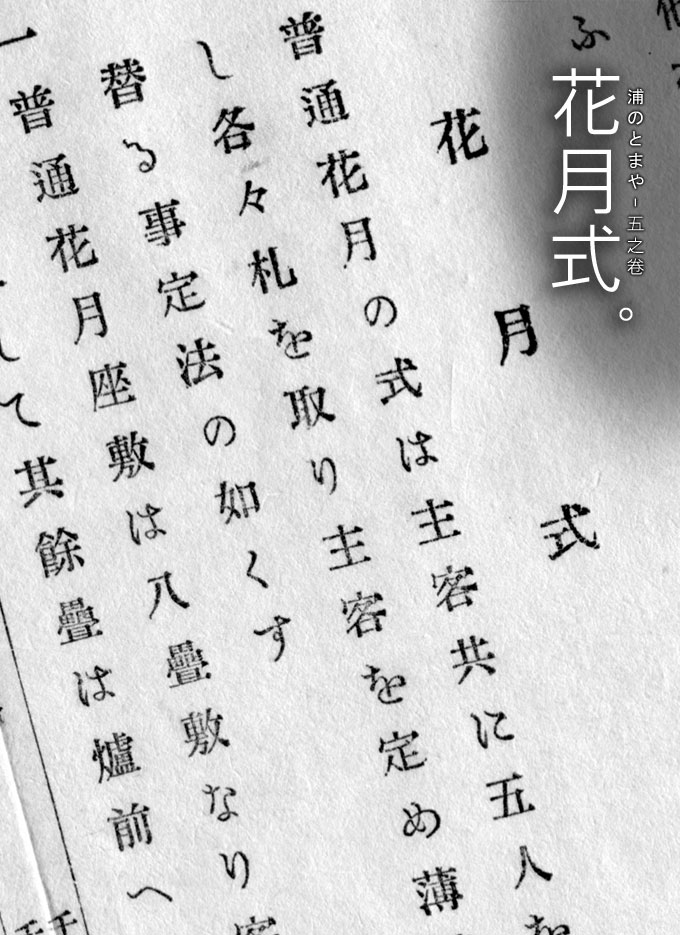 ふ
花月式。
浦のとまや－五之巻
花月式
普通花月の式は主客共に五人を
し各々札を取り主客を定め薄
替る事定法の如くす
一普通花月座敷は八疊敷なり客
して其餘疊は爐前へ